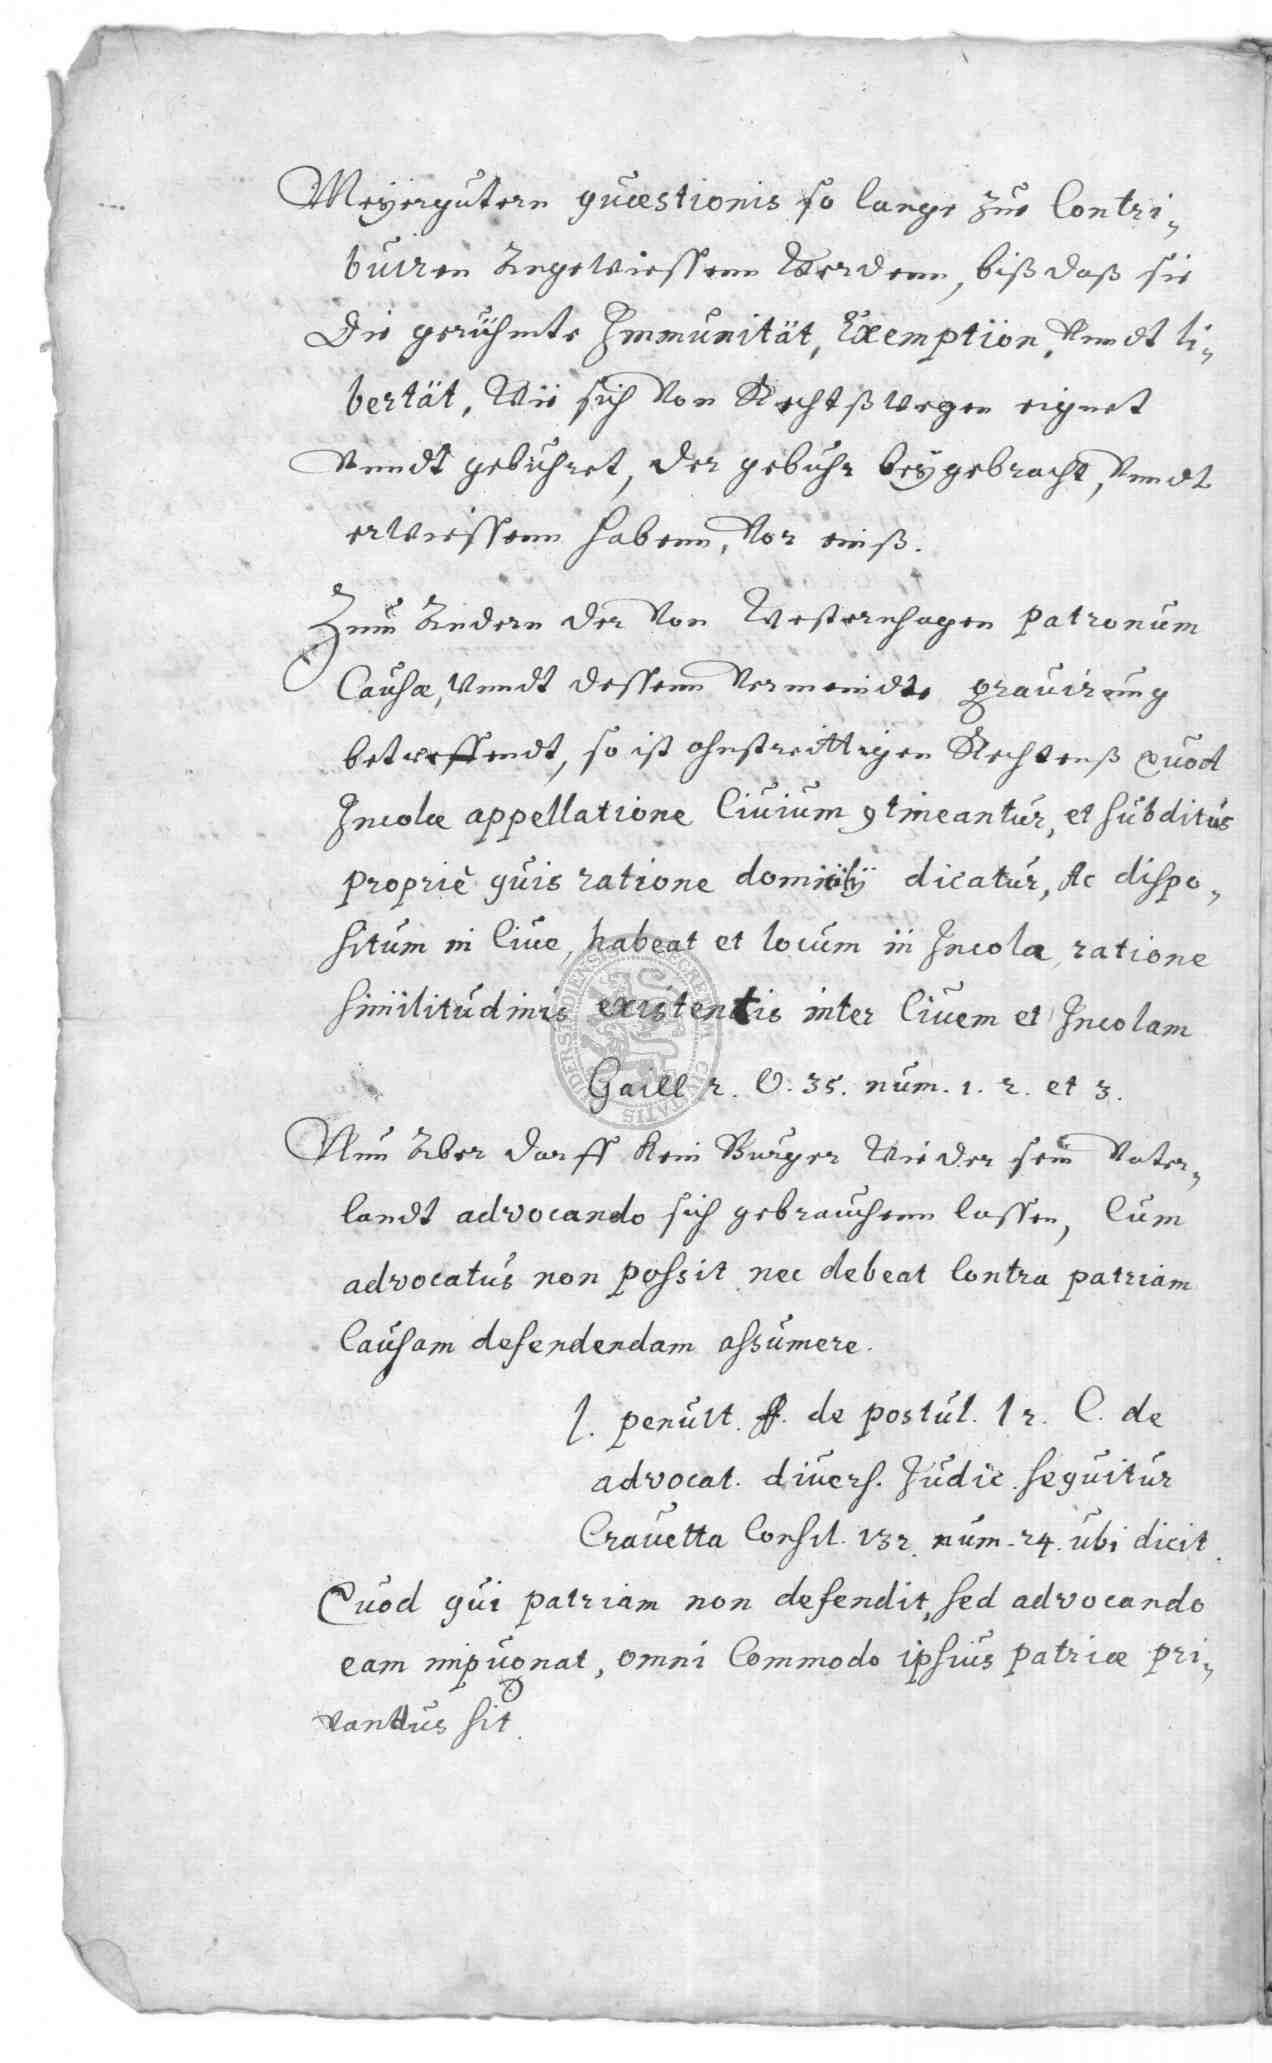 Meyergütern quæstionis so lange zue Contri„
buiren Angewiessenn Werdenn, biß daß sie
Die gerühmte Immunität, Exemption, Vnndt li„
bertät, Wie sich Von Rechtßwegen eignet
Vnndt gebühret, der gebühr beÿgebracht, Vnndt
erwiessenn habenn, Vor einß.
Zum Andern der Von Westernhagen patronum
Causæ, Vnndt dessenn Vermeindte gravirung
betreffendt, so ist ohnstreittigen Rechtenß quod
Incolæ appellatione Civium 9tineantur, et subditus
propriè quis ratione domicilÿ dicatur, Ac dispo„
situm in Cive, habeat et locum in Incola, ratione
similitudinis existentis inter Civem et Incolam
Gaill 2. O. 35. num. 1. 2. et 3.
Nun Aber darff Kein Burger Wieder sein Vater„
landt advocando sich gebrauchenn lassen, Cum
advocatus non possit nec debeat Contra patriam
Causam defendendam assumere.
l. penult. ff. de postul. l 2. C. de
advocat. divers. Judic. sequitur
Cravetta Consil. 132. num. 24. ubi dicit.
Quod qui patriam non defendit, sed advocando
eam impugnat, omni Commodo ipsius patriæ pri„
vandus sit.